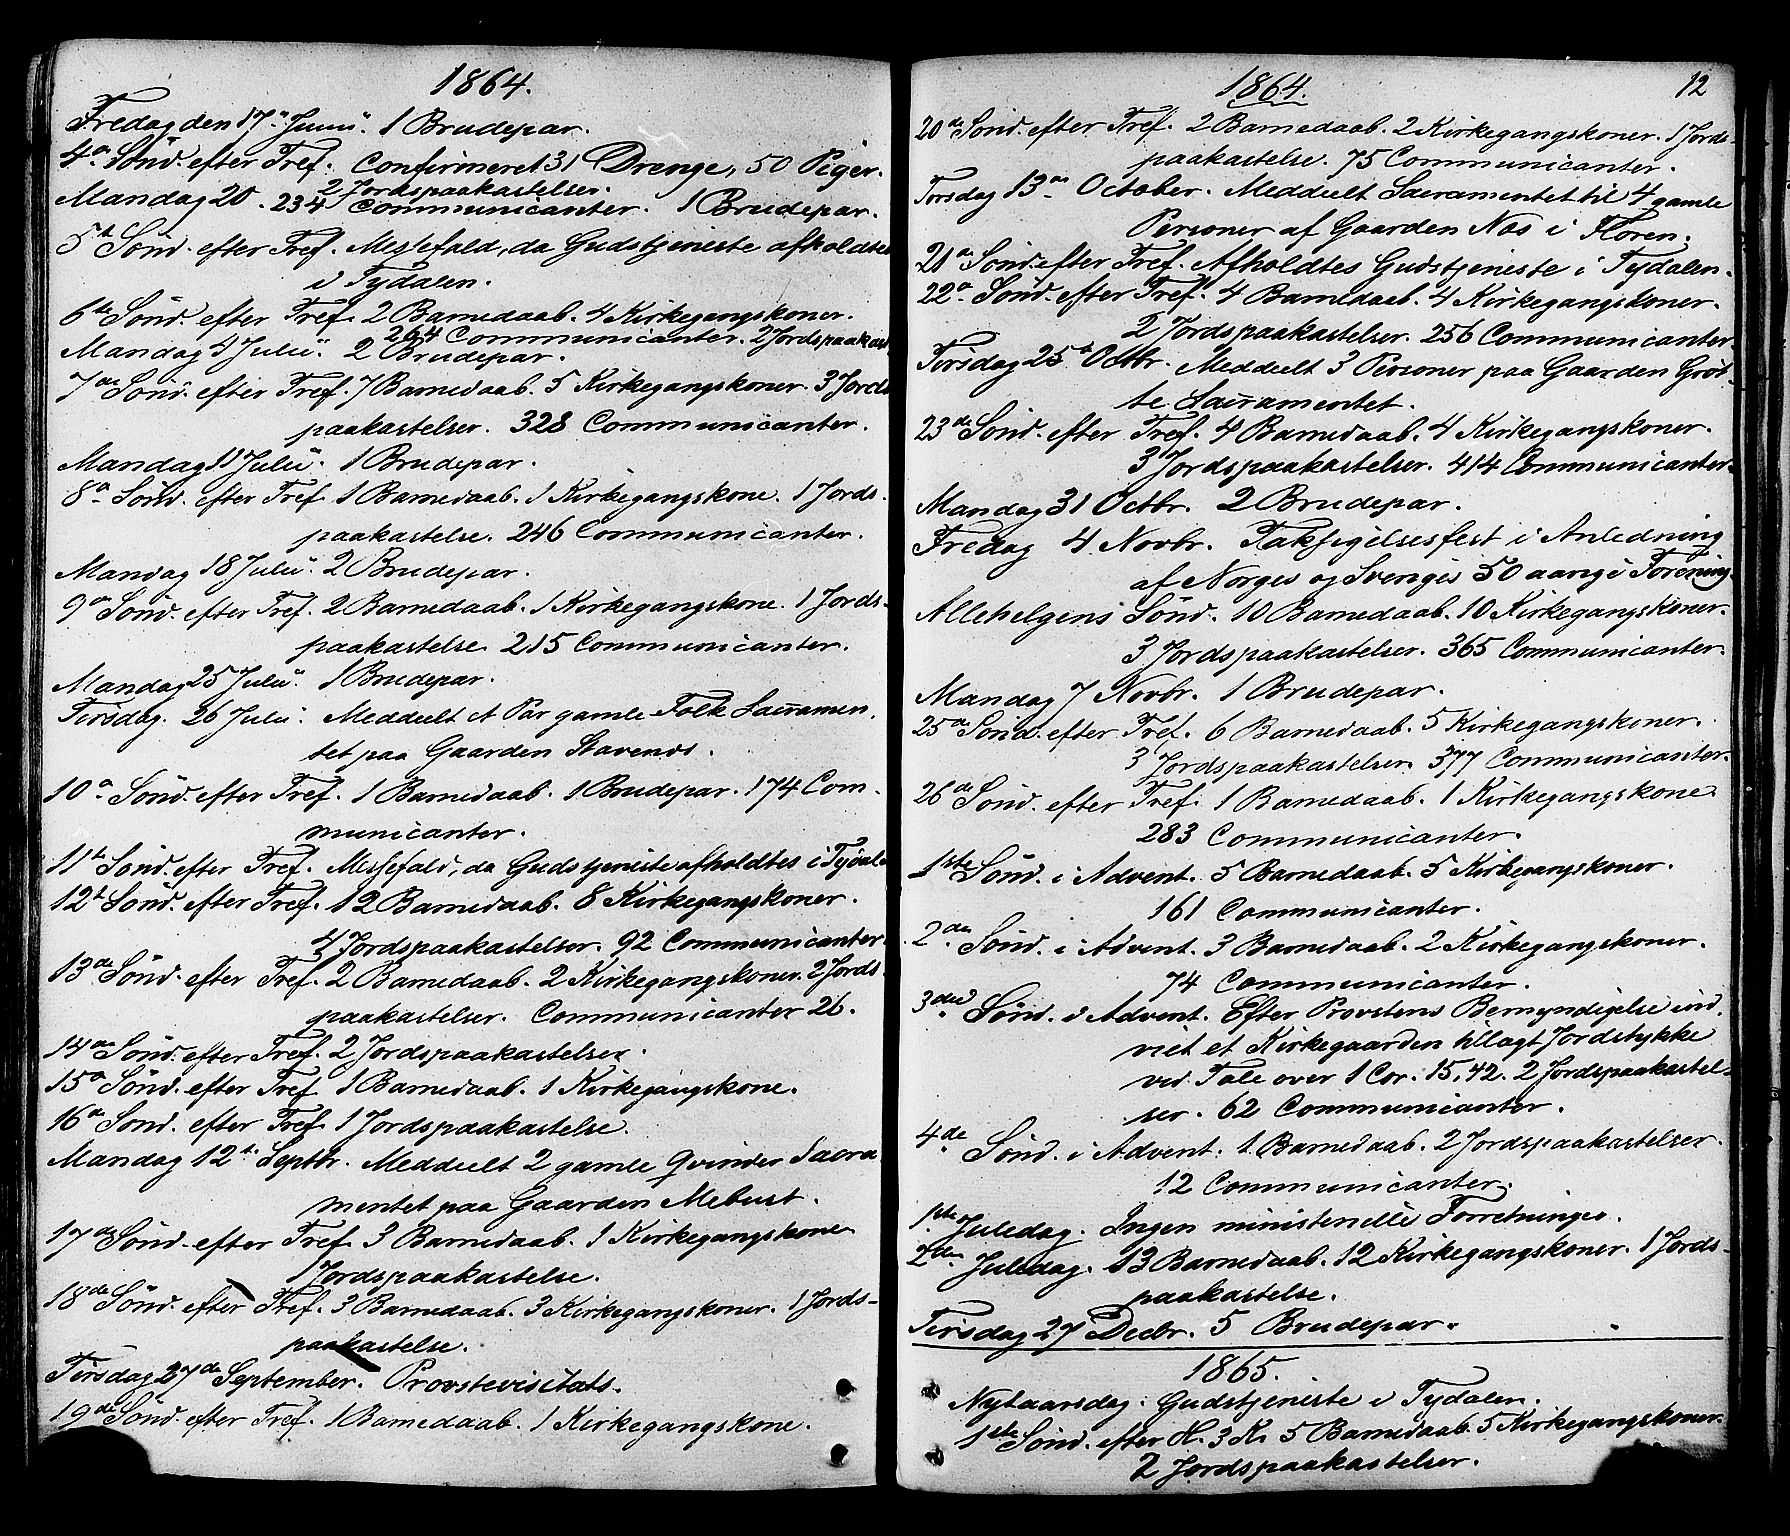 1864.
Fredag den 17. Junii. 1 Brudepar.
4de Sönd. efter Tref. Confirmeret 31 Drenge, 50 Piger.
2 Jordspaakastelser.
Mandag 20. 234 Communicanter. 1 Brudepar.
5t Sönd. efter Tref. Messefald, da Gudstjeneste afholdtes
i Tydalen.
6te Sönd. efter Tref. 2 Barnedaab. 4 Kirkegangskoner.
264 Communicanter. 2 Jordspaakast
Mandag 4 Julii. 2 Brudepar.
7de Sönd. efter Tref. 7 Barnedaab. 5 Kirkegangskoner. 3 Jords
paakastelser. 328 Communicanter.
Mandag 11 Julii. 1 Brudepar.
8a Sönd. efter Tref. 1 Barnedaab. 1 Kirkegangskone. 1 Jords-
paakastelse. 246 Communicanter.
Mandag 18 Julii. 2 Brudepar.
9a Sönd. efter Tref. 2 Barnedaab. 1 Kirkegangskone. 1 Jords-
paakastelse. 215 Communicanter.
Mandag 25 Julii. 1 Brudepar.
Tirsdag. 26 Julii. Meddeelt et Par gamle Folk Sacramen.
tet paa Gaarden Stavenes.
10a Sönd. efter Tref. 1 Barnedaab. 1 Brudepar. 174 Com-
municanter.
11t Sönd. efter Tref. Messefald, da Gudstjeneste afholdtes i Tydal
12t Sönd. efter Tref. 12 Barnedaab. 8 Kirkegangskoner.
4 Jordspaakastelser. 92 Communicanter
13de Sönd. efter Tref. 2 Barnedaab. 2 Kirkegangskoner. 2 Jords-
paakastelser. Communicanter 26.
14de Sönd. efter Tref. 2 Jordspaakastelser.
15a Sönd. efter Tref. 1 Barnedaab. 1 Kirkegangskone.
16de Sönd. efter Tref. 1 Jordspaakastelse.
Mandag 12t Septbr. Meddeelt 2 gamle Qvinder Sacra
mentet paa Gaarden Mebust.
17de Sönd. efter Tref. 3 Barnedaab. 1 Kirkegangskone
1 Jordspaakastelse.
18de Sönd. efter Tref. 3 Barnedaab. 3 Kirkegangskoner. 1 Jords-
paakastelse.
Tirsdag 27de September. Provstevisitats.
19de Sönd. efter Tref. 1 Barnedaab. 1 Kirkegangskone.
1864. 12
20de Sönd. efter Tref. 2 Barnedaab. 2 Kirkegangskoner. 1 Jords-
paakastelse. 75 Communicanter.
Torsdag 13de October. Meddeelt Sacramentet til 4 gamle
Personer af Gaarden Næs i Floren.
21a Sönd. efter Tref. Afholdtes Gudstjeneste i Tydalen.
22a Sönd. efter Tref. 4 Barnedaab. 4 Kirkegangskoner.
2 Jordspaakastelser. 256 Communicanter
Tirsdag 25t Octbr. Meddeelt 3 Personer paa Gaarden Gröt-
te Sacramentet.
23de Sönd. efter Tref. 4 Barnedaab. 4 Kirkegangskoner.
3 Jordspaakastelser. 414 Communicanter
Mandag 31 Octbr. 2 Brudepar.
Fredag 4 Novbr. Takfigelsesfest i Anledning
af Norges og Sveriges 50 aarige Forening.
Allehelgens Sönd. 10 Barnedaab. 10 Kirkegangskoner.
3 Jordspaakastelser. 365 Communicanter.
Mandag 7 Novbr. 1 Brudepar.
25de Sönd. efter Tref. 6 Barnedaab. 5 Kirkegangskoner.
3 Jordspaakastelser. 377 Communicanter.
26de Sönd. efter Tref. 1 Barnedaab. 1 Kirkegangskone.
283 Communicanter.
1ste Sönd. i Advent. 5 Barnedaab. 5 Kirkegangskoner.
161 Communicanter.
2den Sönd. i Advent. 3 Barnedaab. 2 Kirkegangskoner.
74 Communicanter.
3die Sönd. i Advent. Efter Provstens Bemyndigelse ind.
viet et Kirkegaarden tillagt Jordstykke
ved Tale over 1 Cor. 15, 42. 2 Jordspaakastel-
ser. 62 Communicanter.
4de Sönd. i Advent. 1 Barnedaab. 2 Jordspaakastelser.
12 Communicanter.
1ste Juledag. Ingen ministerielle Forretninger.
2den Juledag. 13 Barnedaab. 12 Kirkegangskoner. 1 Jords-
paakastelse.
Tirsdag 27 Decbr. 5 Brudepar.
1865.
Nytaarsdag. Gudstjeneste i Tydalen.
1ste Sönd. efter H. 3 K. 5 Barnedaab. 5 Kirkegangskoner.
2 Jordspaakastelser.